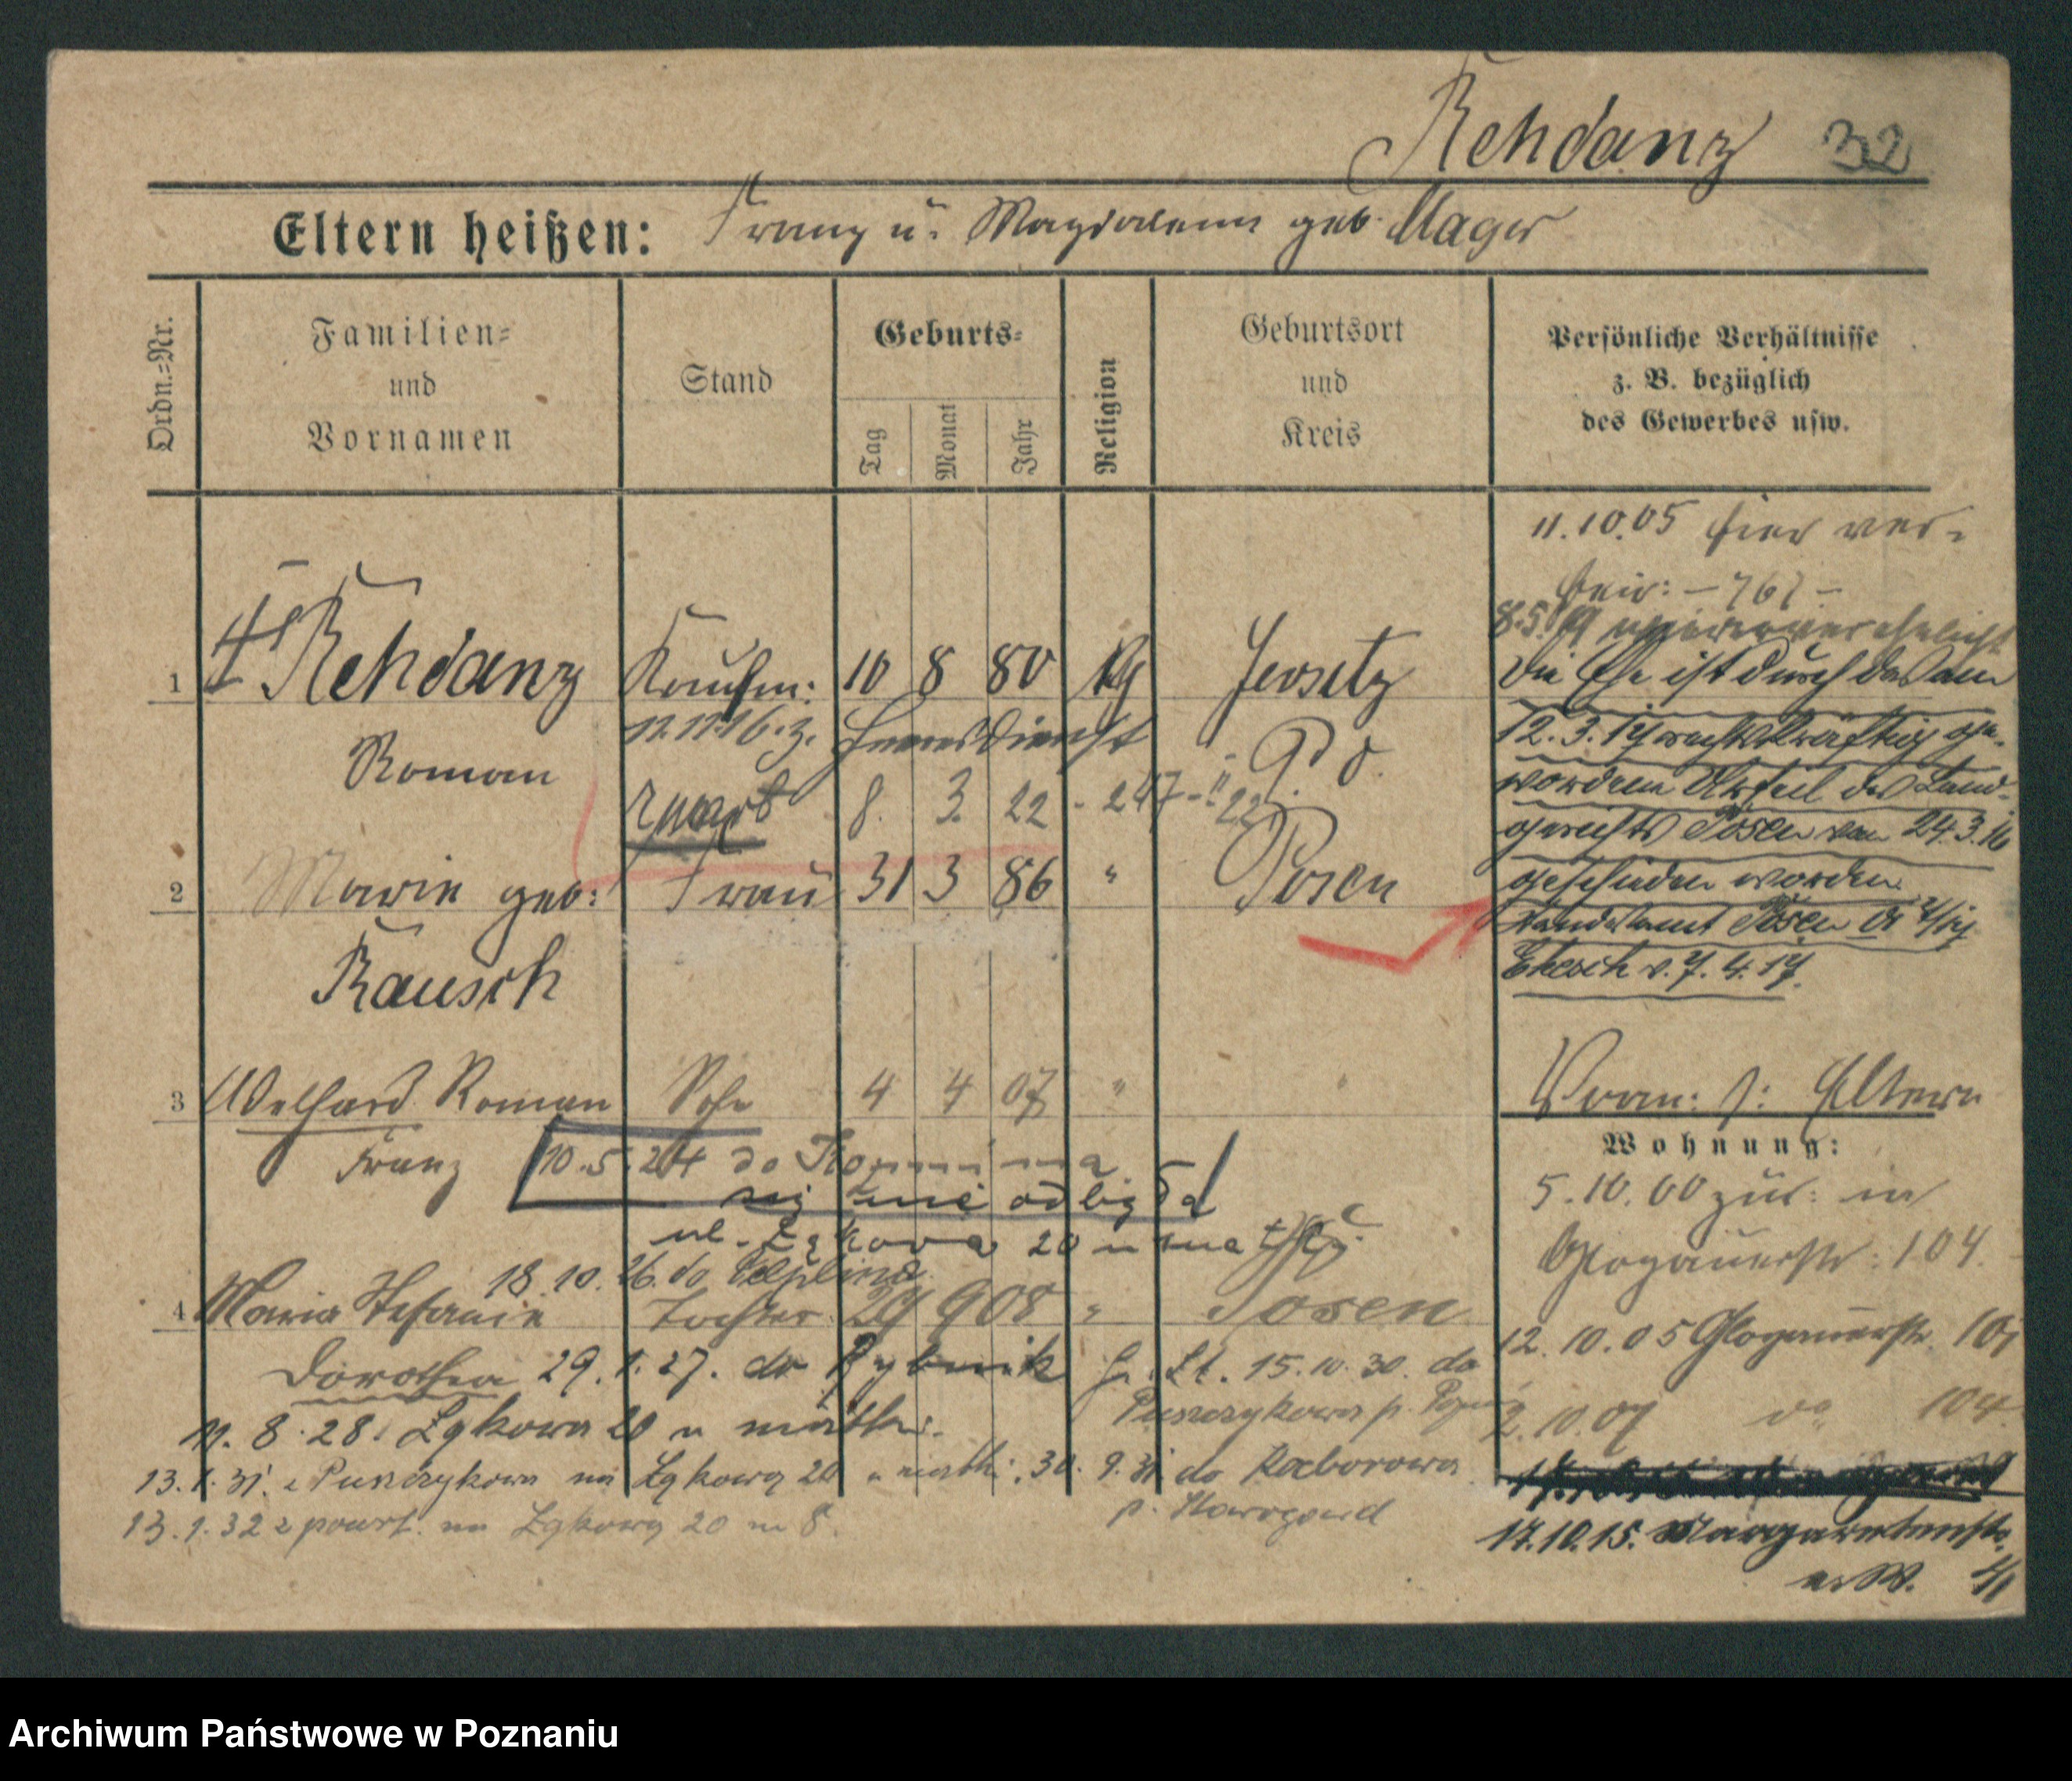 Rehdanz 32
Eltern heißen: Franz u. Magdalena geb. Mager
Ordn.-Nr.
Familien-
und
Vornamen
Stand
Geburts-
Tag
Monat
Jahr
Religion
Geburtsort
und
Kreis
Persönliche Verhältnisse
z. B. bezüglich
des Gewerbes usw.
11.10.05 hier ver-
heir: - 767 -
8.5.19 wiederverehelicht
1 Rehdanz Kaufm: 10 8 80 Jersitz
Die Ehe ist durch das am
11.11.16. z. Heeresdienst
12.3.17 rechtskräftig ge-
Roman
wordene Urteil des Land-
zmarł 8. 3. 22 - 247-II 22
gerichts Posen vom 24.3.16
2 Marie geb: Frau 31 3 86 " Posen
geschieden worden.
Standesamt Posen
Rausch
v. 7. 4. 17.
3 Welhard Roman Sohn 4 4 07 " "
Franz
Vorm: s: Eltern
Wohnung:
10.5.24 do
się nie odbiła
ul. Łąkowa 20 u matki
5.10.00 zur: in
Glogauerstr: 104.
18.10.26. do Pelplina
4 Maria Stefanie Tochter 29 9 08 " Posen
12.10.05 Glogauerstr.
Dorothea 29.1.27. do Rybnik 15.10.30. do
Puszczykowa p. Pozn
2.10.07 do 104
11.8.28. Łąkowa 20 u matki.
13.1.31. z Puszczykowa na Łąkową 20 u matki. 30.9.31 do Kaborowa
p. Starogard
13.1.32 z powrt. na Łąkową 20 m 8.
17.10.15. Margaretenstr.
Archiwum Państwowe w Poznaniu